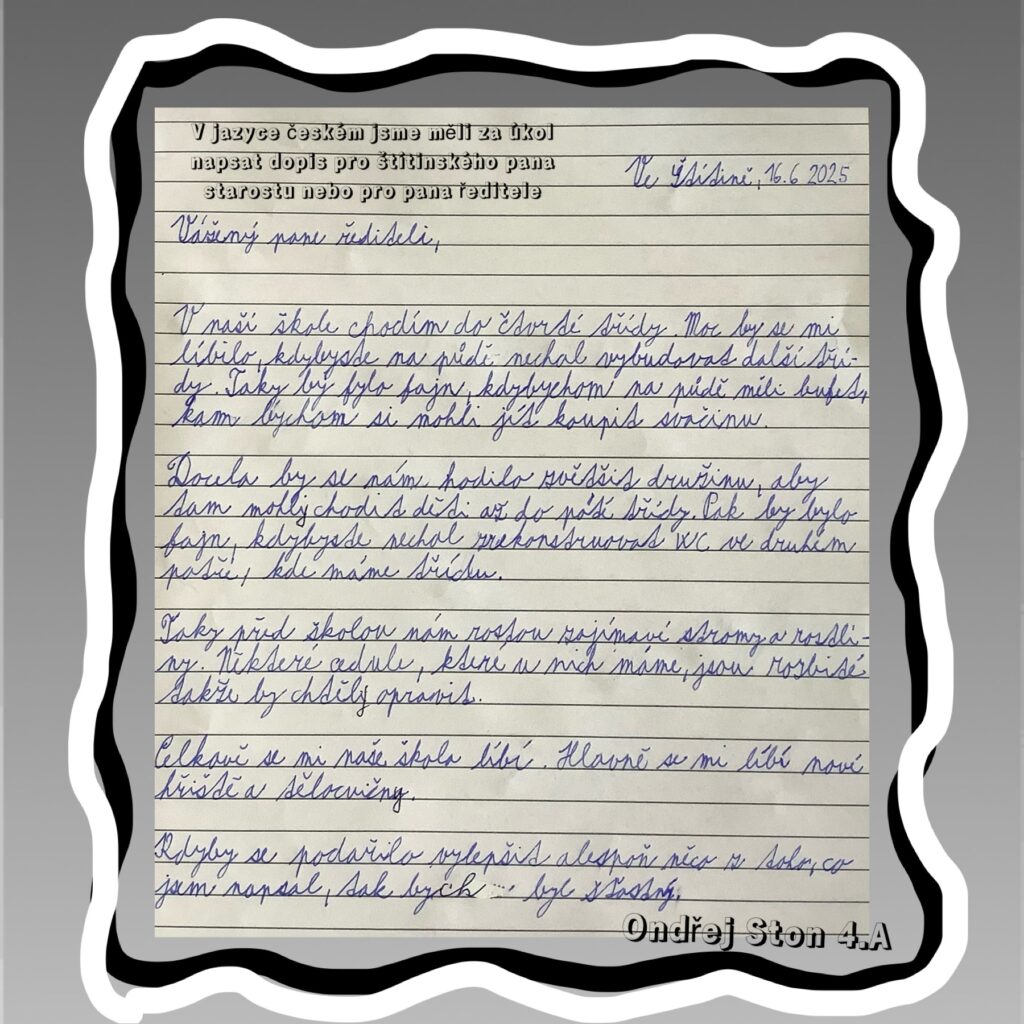 V jazyce českém jsme měli za úkol
napsat dopis pro štítinského pana
starostu nebo pro pana ředitele
Ve Štítině, 16.6 2025
Vážený pane řediteli,
V naší škole chodím do čtvrté třídy. Moc by se mi
líbilo, kdybyste na půdě nechal vybudovat další tří-
dy. Taky by bylo fajn, kdybychom na půdě měli bufet,
kam bychom si mohli jít koupit svačinu.
Docela by se nám hodilo zvětšit družinu, aby
tam mohly chodit děti až do páté třídy. Pak by bylo
fajn, kdybyste nechal zrekonstruovat WC ve druhém
patře, kde máme třídu.
Taky před školou nám rostou zajímavé stromy a rostli-
ny. Některé cedule, které u nich máme, jsou rozbité
takže by chtěly opravit.
Celkově se mi naše škola líbí. Hlavně se mi líbí nové
hřiště a tělocvičny.
Kdyby se podařilo vylepšit alespoň něco z toho, co
jsem napsal, tak bych byl šťastný.
Ondřej Ston 4.A